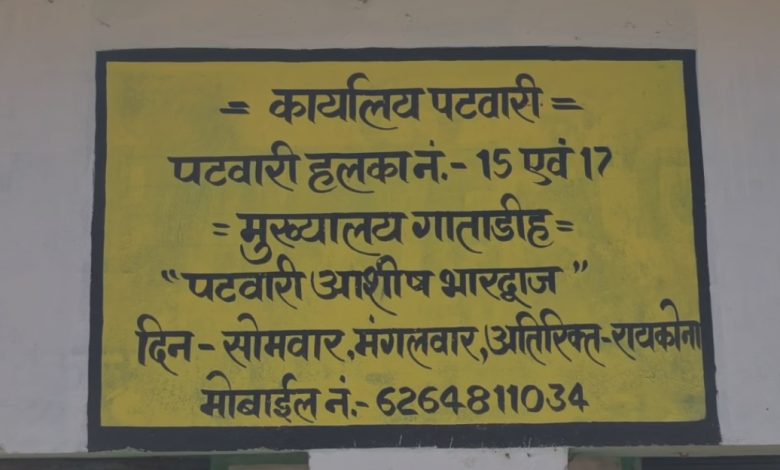 = कार्यालय पटवारी =
पटवारी हलका नं.- 15 एवं 17
= मुख्यालय गाताडीह =
"पटवारी आशीष भारद्वाज"
दिन - सोमवार, मंगलवार, अतिरिक्त - रायकोना
मोबाईल नं.- 6264811034